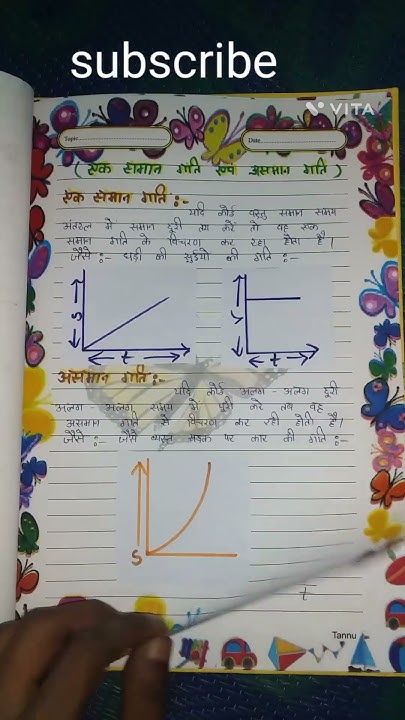 subscribe
VITA
Topic
Date
(एक समान गति एवं असमान गति)
एक समान गति :-
यदि कोई वस्तु समान समय
अंतराल में समान दूरी तय करे तो वह एक
समान गति के विचरण कर रहा होता है।
जैसे :- घड़ी की सुईयों की गति :-
S
t
v
t
असमान गति :-
यदि कोई अलग - अलग दूरी
अलग - अलग समय में पूरी करे तब वह
असमान गति से विचरण कर रही होती है।
जैसे :- जैसे व्यस्त सड़क पर कार की गति :-
S
t
Tannu